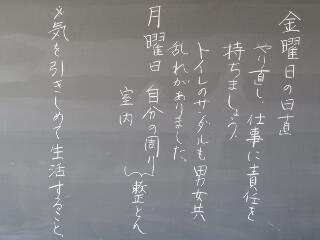 金曜日の日直
やり直し、仕事に責任を
持ちましょう。
トイレのサンダルも男女共
乱れがありました。
月曜日 自分の周り
室内 整とん
〆気を引きしめて生活すること